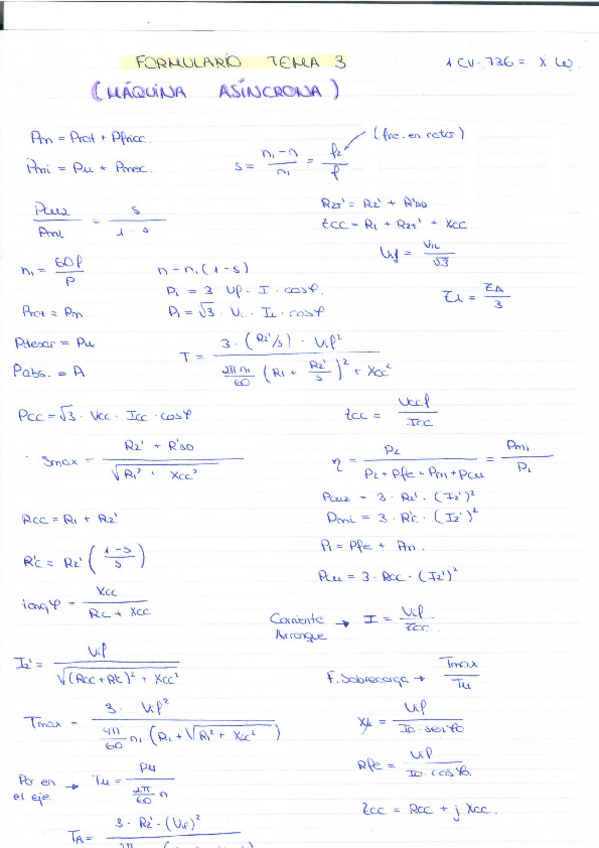 FORMULARIO TEMA 3
1 CV · 736 = X W.
(MÁQUINA ASÍNCRONA)
Pm = Prot + Pfricc.
Pmi = Pu + Pmec.
s = (n1 - n) / n1 = f2 / f
(fre. en rotor)
Pcu2 / Pmi = s / (1 - s)
R2T' = R2' + R'ad
Zcc = R1 + R2T' + Xcc
V1f = V1L / √3
n1 = 60f / P
n = n1 (1 - s)
P1 = 3 Vf · I · cosφ.
P1 = √3 · VL · IL · cosφ
Zλ = ZΔ / 3
Prot = Pm
Peje = Pu
Pabs. = P1
T = 3 · (R2'/s) · V1f² / ( 2πn1/60 (R1 + R2'/s)² + Xcc² )
Pcc = √3 · Vcc · Icc · cosφ
Zcc = Vccf / Icc
smax = (R2' + R'ad) / √(R1² + Xcc²)
η = P2 / (P2 + Pfe + Pm + Pcu) = Pmi / P1
Pcu2 = 3 · R2' · (I2')²
Pmi = 3 · R'c · (I2')²
Rcc = R1 + R2'
P1 = Pfe + Pn.
R'c = R2' ( (1 - s) / s )
Pcu = 3 · Rcc · (I2')²
tangφ = Xcc / (Rc + Xcc)
Corriente Arranque → I = V1f / Zcc.
I2' = V1f / √((Rcc + R'c)² + Xcc²)
F. Sobrecarga → Tmax / Tu
Tmax = 3 · V1f² / ( 4π/60 n1 (R1 + √(R1² + Xcc²)) )
Xμ = V1f / (Io · senφo)
Rfe = V1f / (Io · cosφo)
Par en el eje → Tu = Pu / ( 2π/60 n )
Zcc = Rcc + j Xcc.
TA = 3 · R2' · (V1f)²